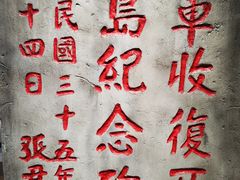 車收復西
島紀念碑
民國三十五年
十四日 張君